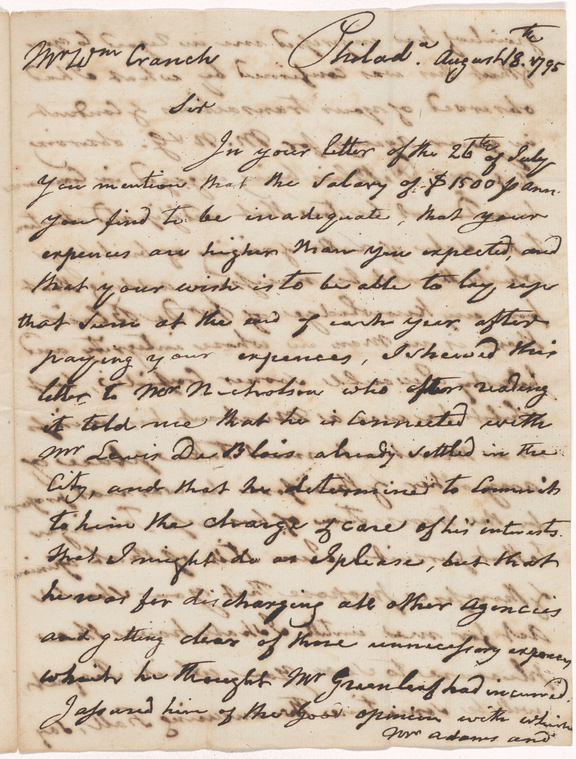 Mr Wm Cranch Philada. August 18th 1795
Sir
In your letter of the 26th of July
you mention that the Salary of $1500 p ann.
you find to be inadequate, that your
expences are higher than you expected, and
that your wish is to be able to lay up
that Sum at the end of each year after
paying your expences, I shewed this
letter to Mr Nicholson who after reading
it told me that he is Connected with
Mr Lewis De Blois already settled in the
City, and that he determined to Commit
to him the charge & care of his interests.
that I might do as I please, but that
he was for discharging all other Agencies
and getting clear of those unnecessary expences
which he thought Mr Greenleaf had incurred.
I assured him of the good opinion with which
Mr Adams and